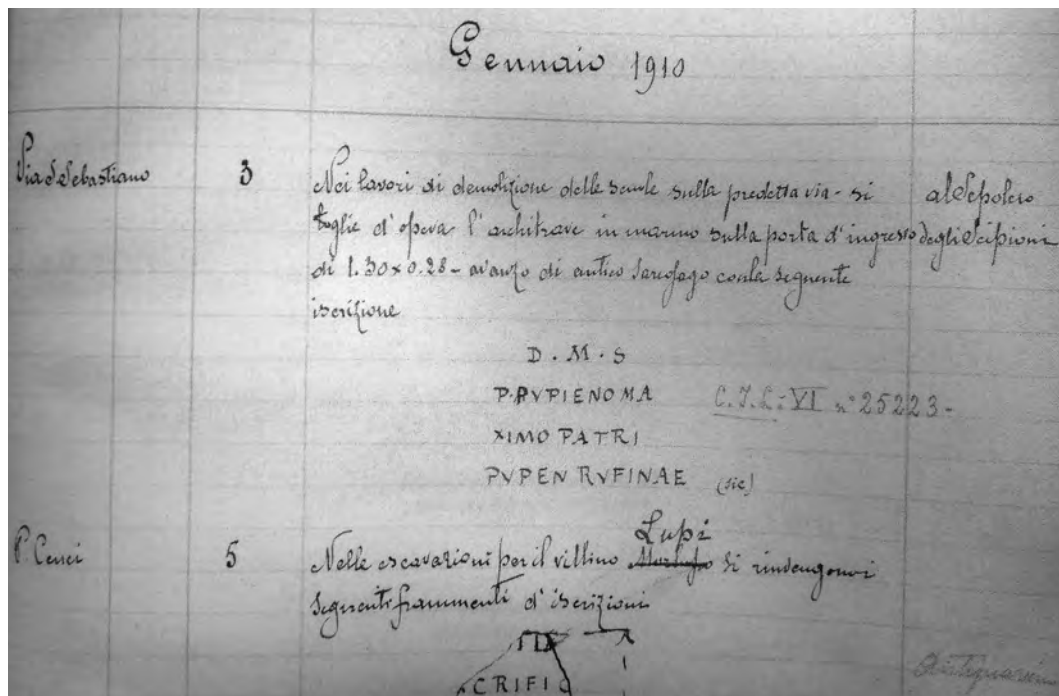 Gennaio 1910
Via S. Sebastiano 3 Nei lavori di demolizione delle scuole sulla predetta via - si al Sepolcro
toglie d'opera l'architrave in marmo sulla porta d'ingresso degli Scipioni
di 1.30 x 0.28 - avanzo di antico sarcofago con la seguente
iscrizione
D . M . S
P. PVPIENO MA C.I.L: VI n° 25223 -
XIMO PATRI
PVPEN RVFINAE (sic)
Lupi
P. Cenci 5 Nelle escavazioni per il villino si rinvengono i
seguenti frammenti d'iscrizioni
CRIFIC